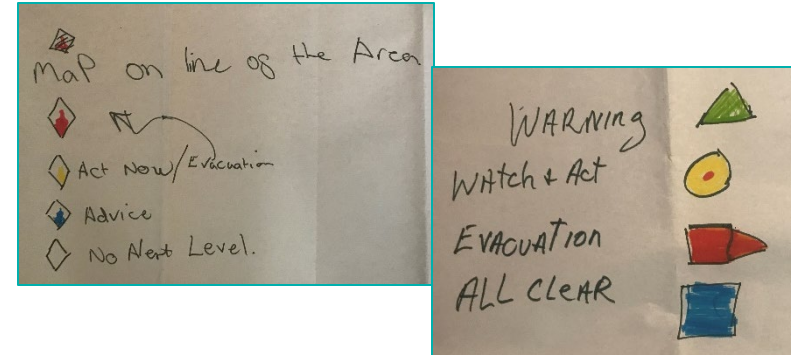 Map on line of the Area
Act Now/Evacuation
Advice
No Alert Level.
WARNING
WAtch & Act
EVACUATION
ALL CLEAR